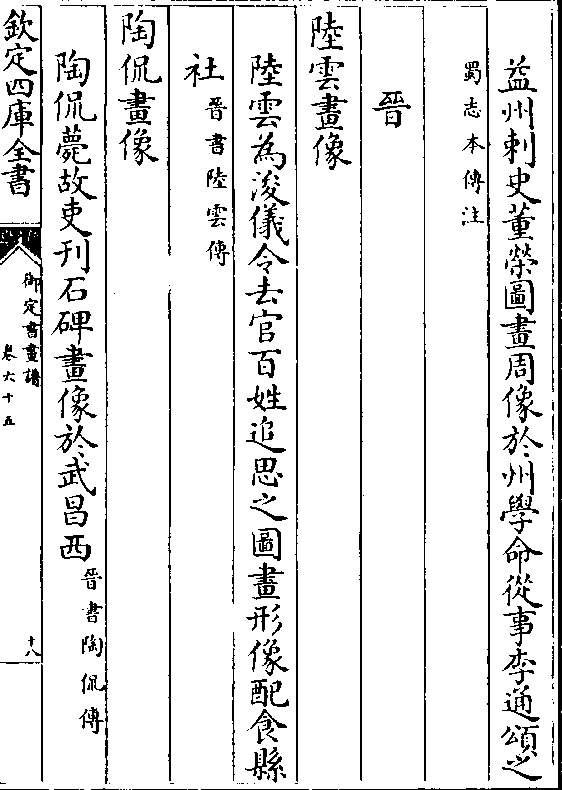 益州刺史董榮圖畫周像於州學命從事李通頌之
蜀志本傳注
晉
陸雲畫像
陸雲為浚儀令去官百姓追思之圖畫形像配食縣
社晉書陸雲傳
陶侃畫像
陶侃薨故吏刊石碑畫像於武昌西晉書陶侃傳
欽定四庫全書
御定書畫譜
卷六十五
十八